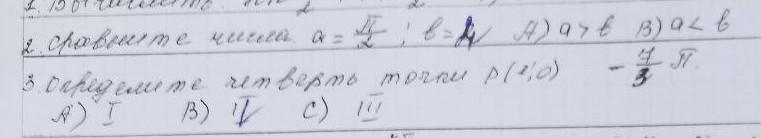 2. Сравните числа a = π/2 ; b = 2 А) a > b В) a < b
3. Определите четверть точки P(1;0) - 7/3 π.
А) I В) II С) III